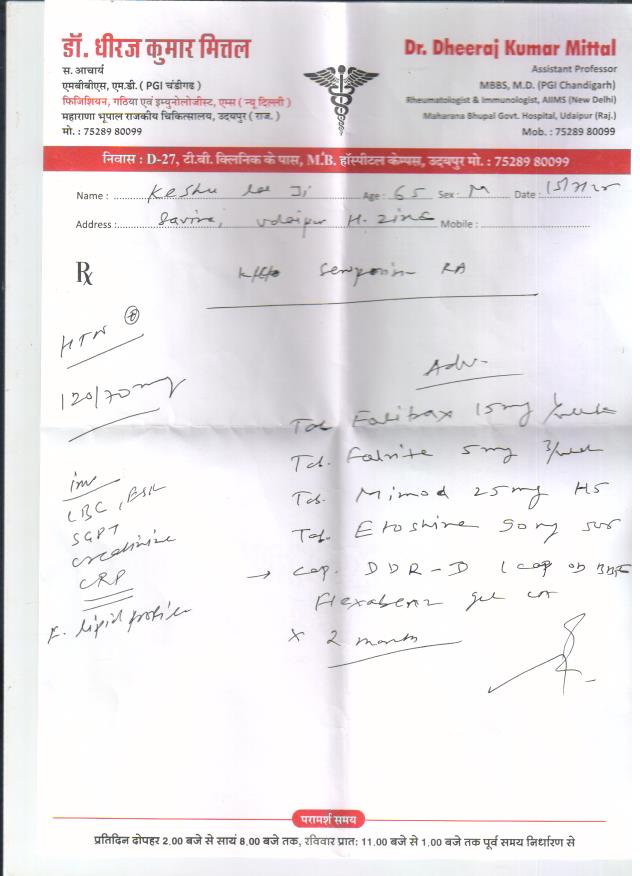 डॉ. धीरज कुमार मित्तल
स. आचार्य
एमबीबीएस, एम.डी. ( PGI चंडीगढ )
फिजिशियन, गठिया एवं इम्युनोलोजीस्ट, एम्स ( न्यू दिल्ली )
महाराणा भूपाल राजकीय चिकित्सालय, उदयपुर ( राज. )
मो. : 75289 80099
Dr. Dheeraj Kumar Mittal
Assistant Professor
MBBS, M.D. (PGI Chandigarh)
Rheumatologist & Immunologist, AIIMS (New Delhi)
Maharana Bhupal Govt. Hospital, Udaipur (Raj.)
Mob. : 75289 80099
निवास : D-27, टी.बी. क्लिनिक के पास, M.B. हॉस्पीटल केम्पस, उदयपुर मो. : 75289 80099
Name : Keshu Lal Ji Age : 65 Sex : M Date :
Address : Savina, Udaipur H. Zinc Mobile :
Rx
RA
HTN +
120/70
Adv.
Tab. 15mg /week
Tab. Folvite 5mg 3/week
Tab. Mimod 25mg HS
Tab. Etoshine 90mg SOS
→ Cap. DDR-D 1 cap OD BBF
Flexabenz gel LA
x 2 month
inv
CBC, ESR
SGPT
creatinine
CRP
F. lipid profile
परामर्श समय
प्रतिदिन दोपहर 2.00 बजे से सायं 8.00 बजे तक, रविवार प्रात: 11.00 बजे से 1.00 बजे तक पूर्व समय निर्धारण से